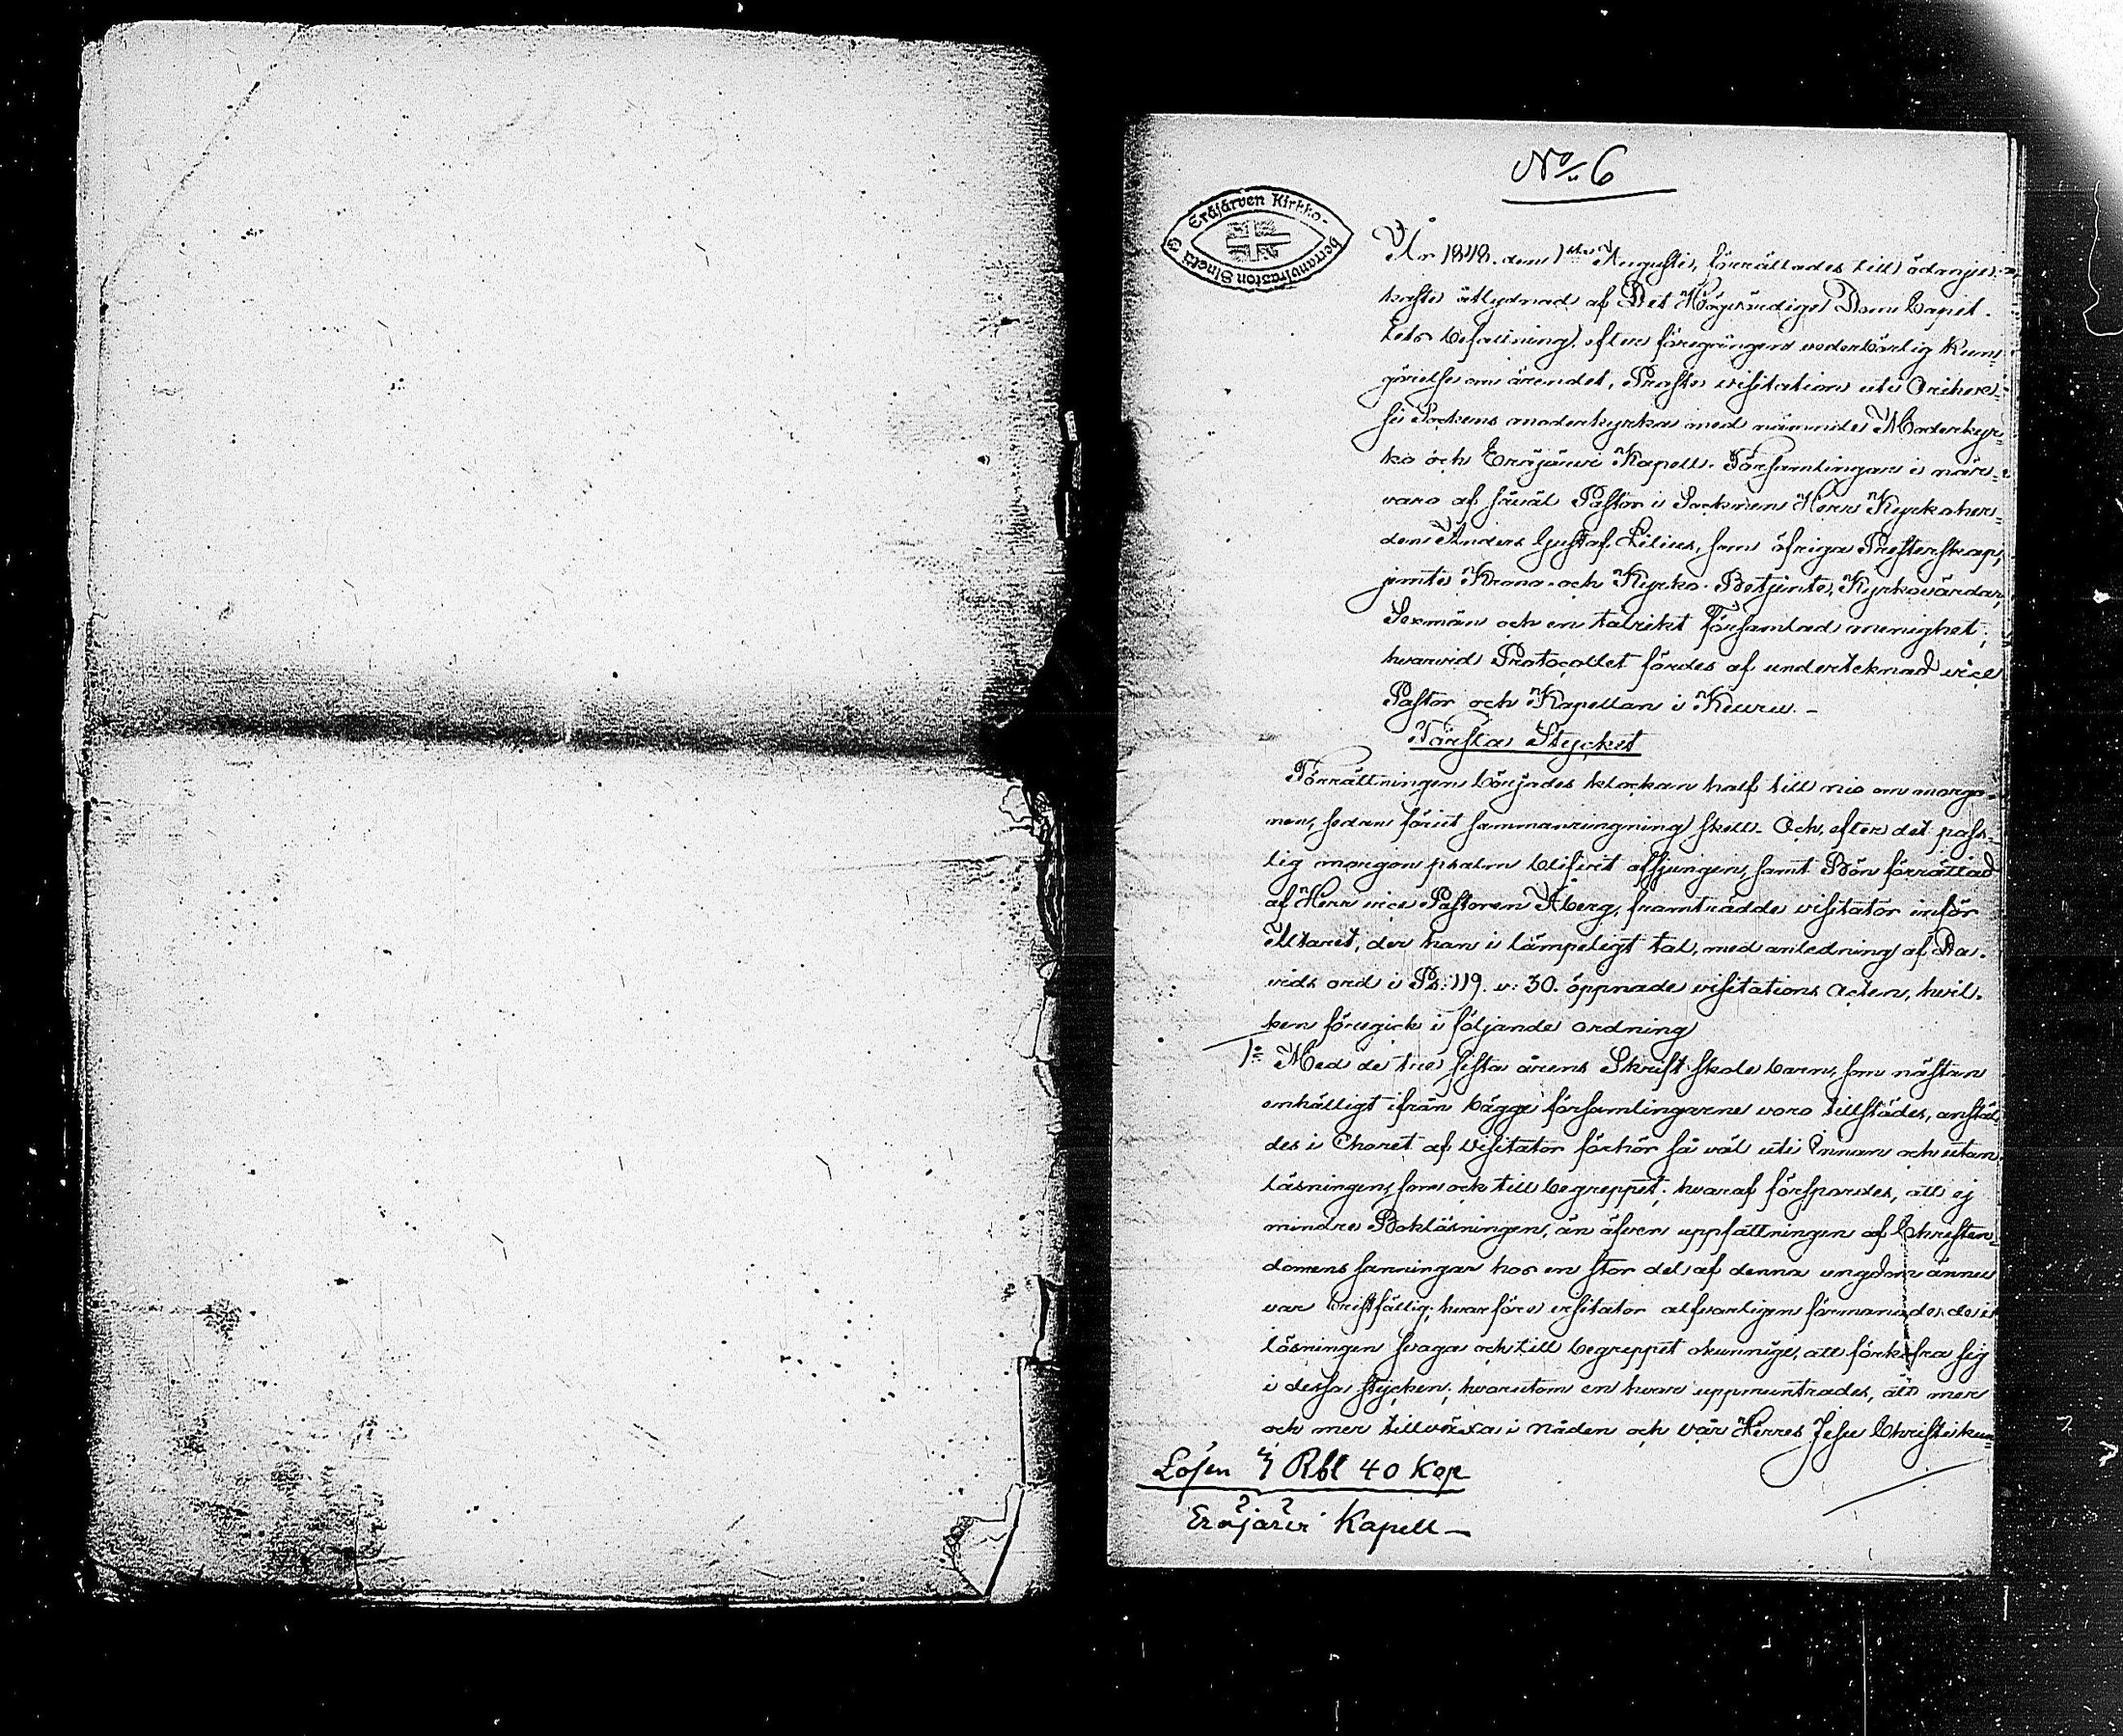 No 6
Eräjärven Kirkko-
herranviraston Sinetti
År 1848. den 1sta Augusti, förrättades till ödmju-
kaste åtlydnad af Det Högvördige Dom Capit-
lets befallning, efter föregången vederbörlig kun-
görelse om ärendet, Probste visitation uti Orihves-
si Sockens moderkyrka med nämnde Moderkyr-
ko och Eräjärvi Kapell. Församlingar i när-
varo af såväl Pastor i Socknen Herr Kyrkoher-
den Anders Gustaf Lilius, som öfriga Presterskap,
jemte Krono- och Kyrko-Betjente, Kyrkovärdar,
Sexmän och en talrikt församlad menighet;
hvarvid Protocollet fördes af undertecknad vice
Pastor och Kapellan i Kuru. -
Första Stycket
Förrättningen börjades klockan half till nio om morgo-
nen, sedan förut sammanringning skett. Och, efter det pass-
lig morgon psalm blifvit afsjungen, samt Bön förrättad
af Herr vice Pastoren Åberg, framträdde visitator inför
Altaret, der han i lämpeligt tal, med anledning af Da-
vids ord i Ps: 119. v: 30. öppnade visitations Acten, hvil-
ken föregick i följande ordning
1:o Med de tre sista årens Skrift-skole barn, som nästan
enhälligt ifrån bägge församlingarne voro tillstädes, anstäl-
des i Choret af Visitator förhör så väl uti Innan och utan
läsningen, som ock till begreppet; hvaraf förspordes, att ej
mindre Bokläsningen, än äfven uppfattningen af Christen-
domens sanningar hos en stor del af denna ungdom ännu
var bristfällig; hvarföre visitator alfvarligen förmanade de i
läsningen svaga och till begreppet okunnige, att förkofra sig
i dessa stycken; hvarutom en hvar uppmuntrades, att mer
och mer tillväxa i nåden och vår Herres Jesu Christi kun-
Lösen Rbl 40 Kop
Eräjärvi Kapell -